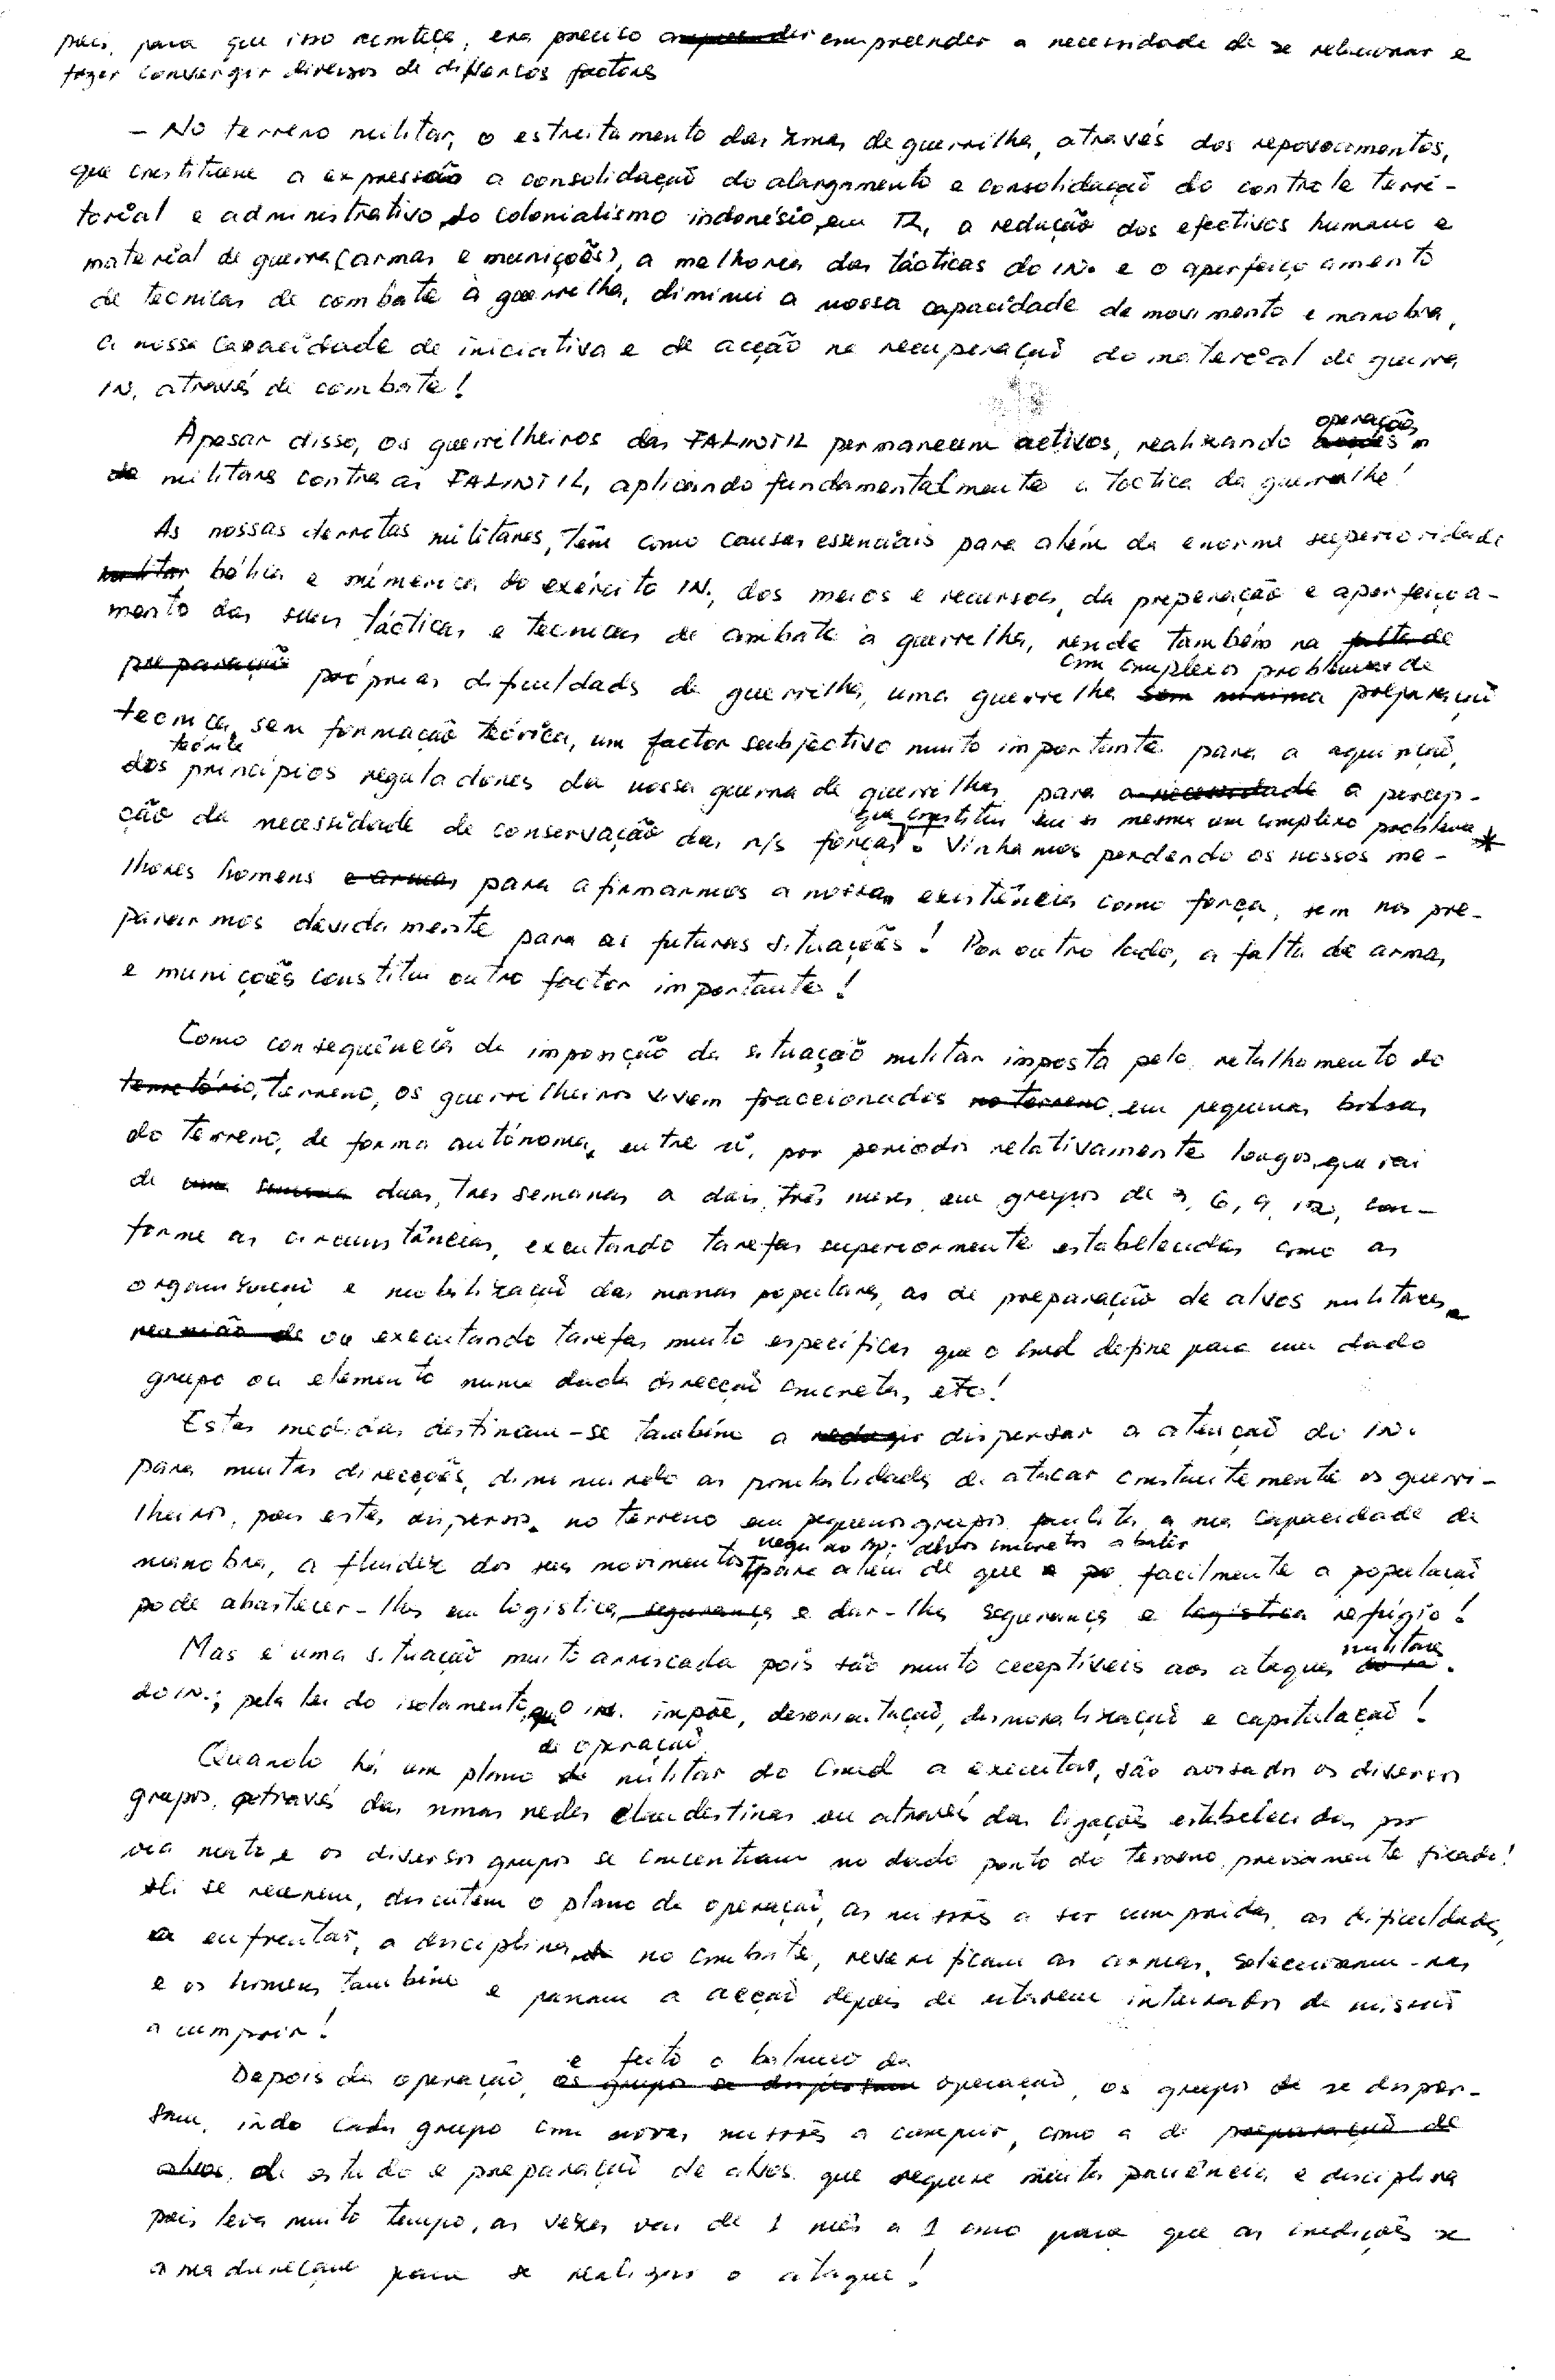 pois, para que isso aconteça, era preciso empreender a necessidade de se relacionar e
fazer convergir diversos de diferentes factores
- No terreno militar, o estreitamento das zonas de guerrilha, através dos repovoamentos,
que constituem a expressão a consolidação do alargamento e consolidação do controle terri-
torial e administrativo do colonialismo indonésio, em TL, a redução dos efectivos humanos e
material de guerra (armas e munições), a melhoria das tácticas do IN. e o aperfeiçoamento
de tecnicas de combate à guerrilha, diminui a nossa capacidade de movimento e manobra,
a nossa capacidade de iniciativa e de acção na recuperação do material de guerra
IN. através de combate!
Apesar disso, os guerrilheiros das FALINTIL permanecem activos, realizando operações
militares contra as FALINTIL, aplicando fundamentalmente a táctica da guerrilha!
As nossas derrotas militares, têm como causas essenciais para além da enorme superioridade
bélica e númerica do exército IN., dos meios e recursos, da preparação e aperfeiçoa-
mento das suas tácticas e tecnicas de combate à guerrilha, reside também na falta de
preparação próprias dificuldades de guerrilha, uma guerrilha com complexos problemas de preparação
tecnica, sem formação teórica, um factor subjectivo muito importante para a aquisição,
dos princípios reguladores da nossa guerra de guerrilha, para a necessidade a percep-
ção da necessidade de conservação das n/s forças que constitui em si mesma um complexo problema *. Vinhamos perdendo os nossos me-
lhores homens e armas, para afirmarmos a nossa existência como força, sem nos pre-
pararmos devidamente para as futuras situações! Por outro lado, a falta de armas
e munições constitui outro factor importante!
Como consequência da imposição da situação militar imposta pelo retalhamento do
território, terreno, os guerrilheiros vivem fraccionados no terreno, em pequenas bolsas
do terreno, de forma autónoma, entre si, por periodos relativamente longos, que vai
de uma semana duas, tres semanas a dois, três meses em grupos de 3, 6, 9, 12, con-
forme as circunstâncias, executando tarefas superiormente estabelecidas como as
organização e mobilização das massas populares, as de preparação de alvos militares,
reunião de ou executando tarefas muito específicas que o Cmd define para um dado
grupo ou elemento numa dada direcção concreta, etc!
Estas medidas destinam-se também a dispersar a atenção do IN.
para muitas direcções, diminuindo as possibilidades de atacar constantemente os guerri-
lheiros, pois estes dispersos no terreno em pequenos grupos facilita a sua capacidade de
manobra, a fluidez dos seus movimentos, nega ao IN. alvos concretos a bater para além de que facilmente a população
pode abastecer-lhes em logistica, segurança e dar-lhes segurança e logistica refúgio!
Mas é uma situação muito arriscada pois são muito ceceptíveis aos ataques militares
do IN.; pela lei do isolamento que o IN. impõe, desorientação, desmoralização e capitulação!
Quando há um plano de operação militar do Cmd a executar, são avisados os diversos
grupos, através das nossas redes clandestinas ou através das ligações estabelecidas por
via mato, e os diversos grupos se concentram no dado ponto do terreno, previamente ficado!
Ali se reunem, discutem o plano da operação, as missões a ser cumpridas, as dificuldades
a enfrentar, a disciplina no combate, reverificam as armas, seleccionam-nas
e os homens também e passam a acção depois de estarem inteirados da missão
a cumprir!
Depois da operação, e feito o balanço da operação, os grupos se disper-
sam, indo cada grupo com novas missões a cumprir, como a de preparação de
alvos, de estudo e preparação de alvos que requere muita paciência e disciplina
pois leva muito tempo, as vezes vai de 1 mês a 1 ano para que as condições se
amadureçam para se realizar o ataque!